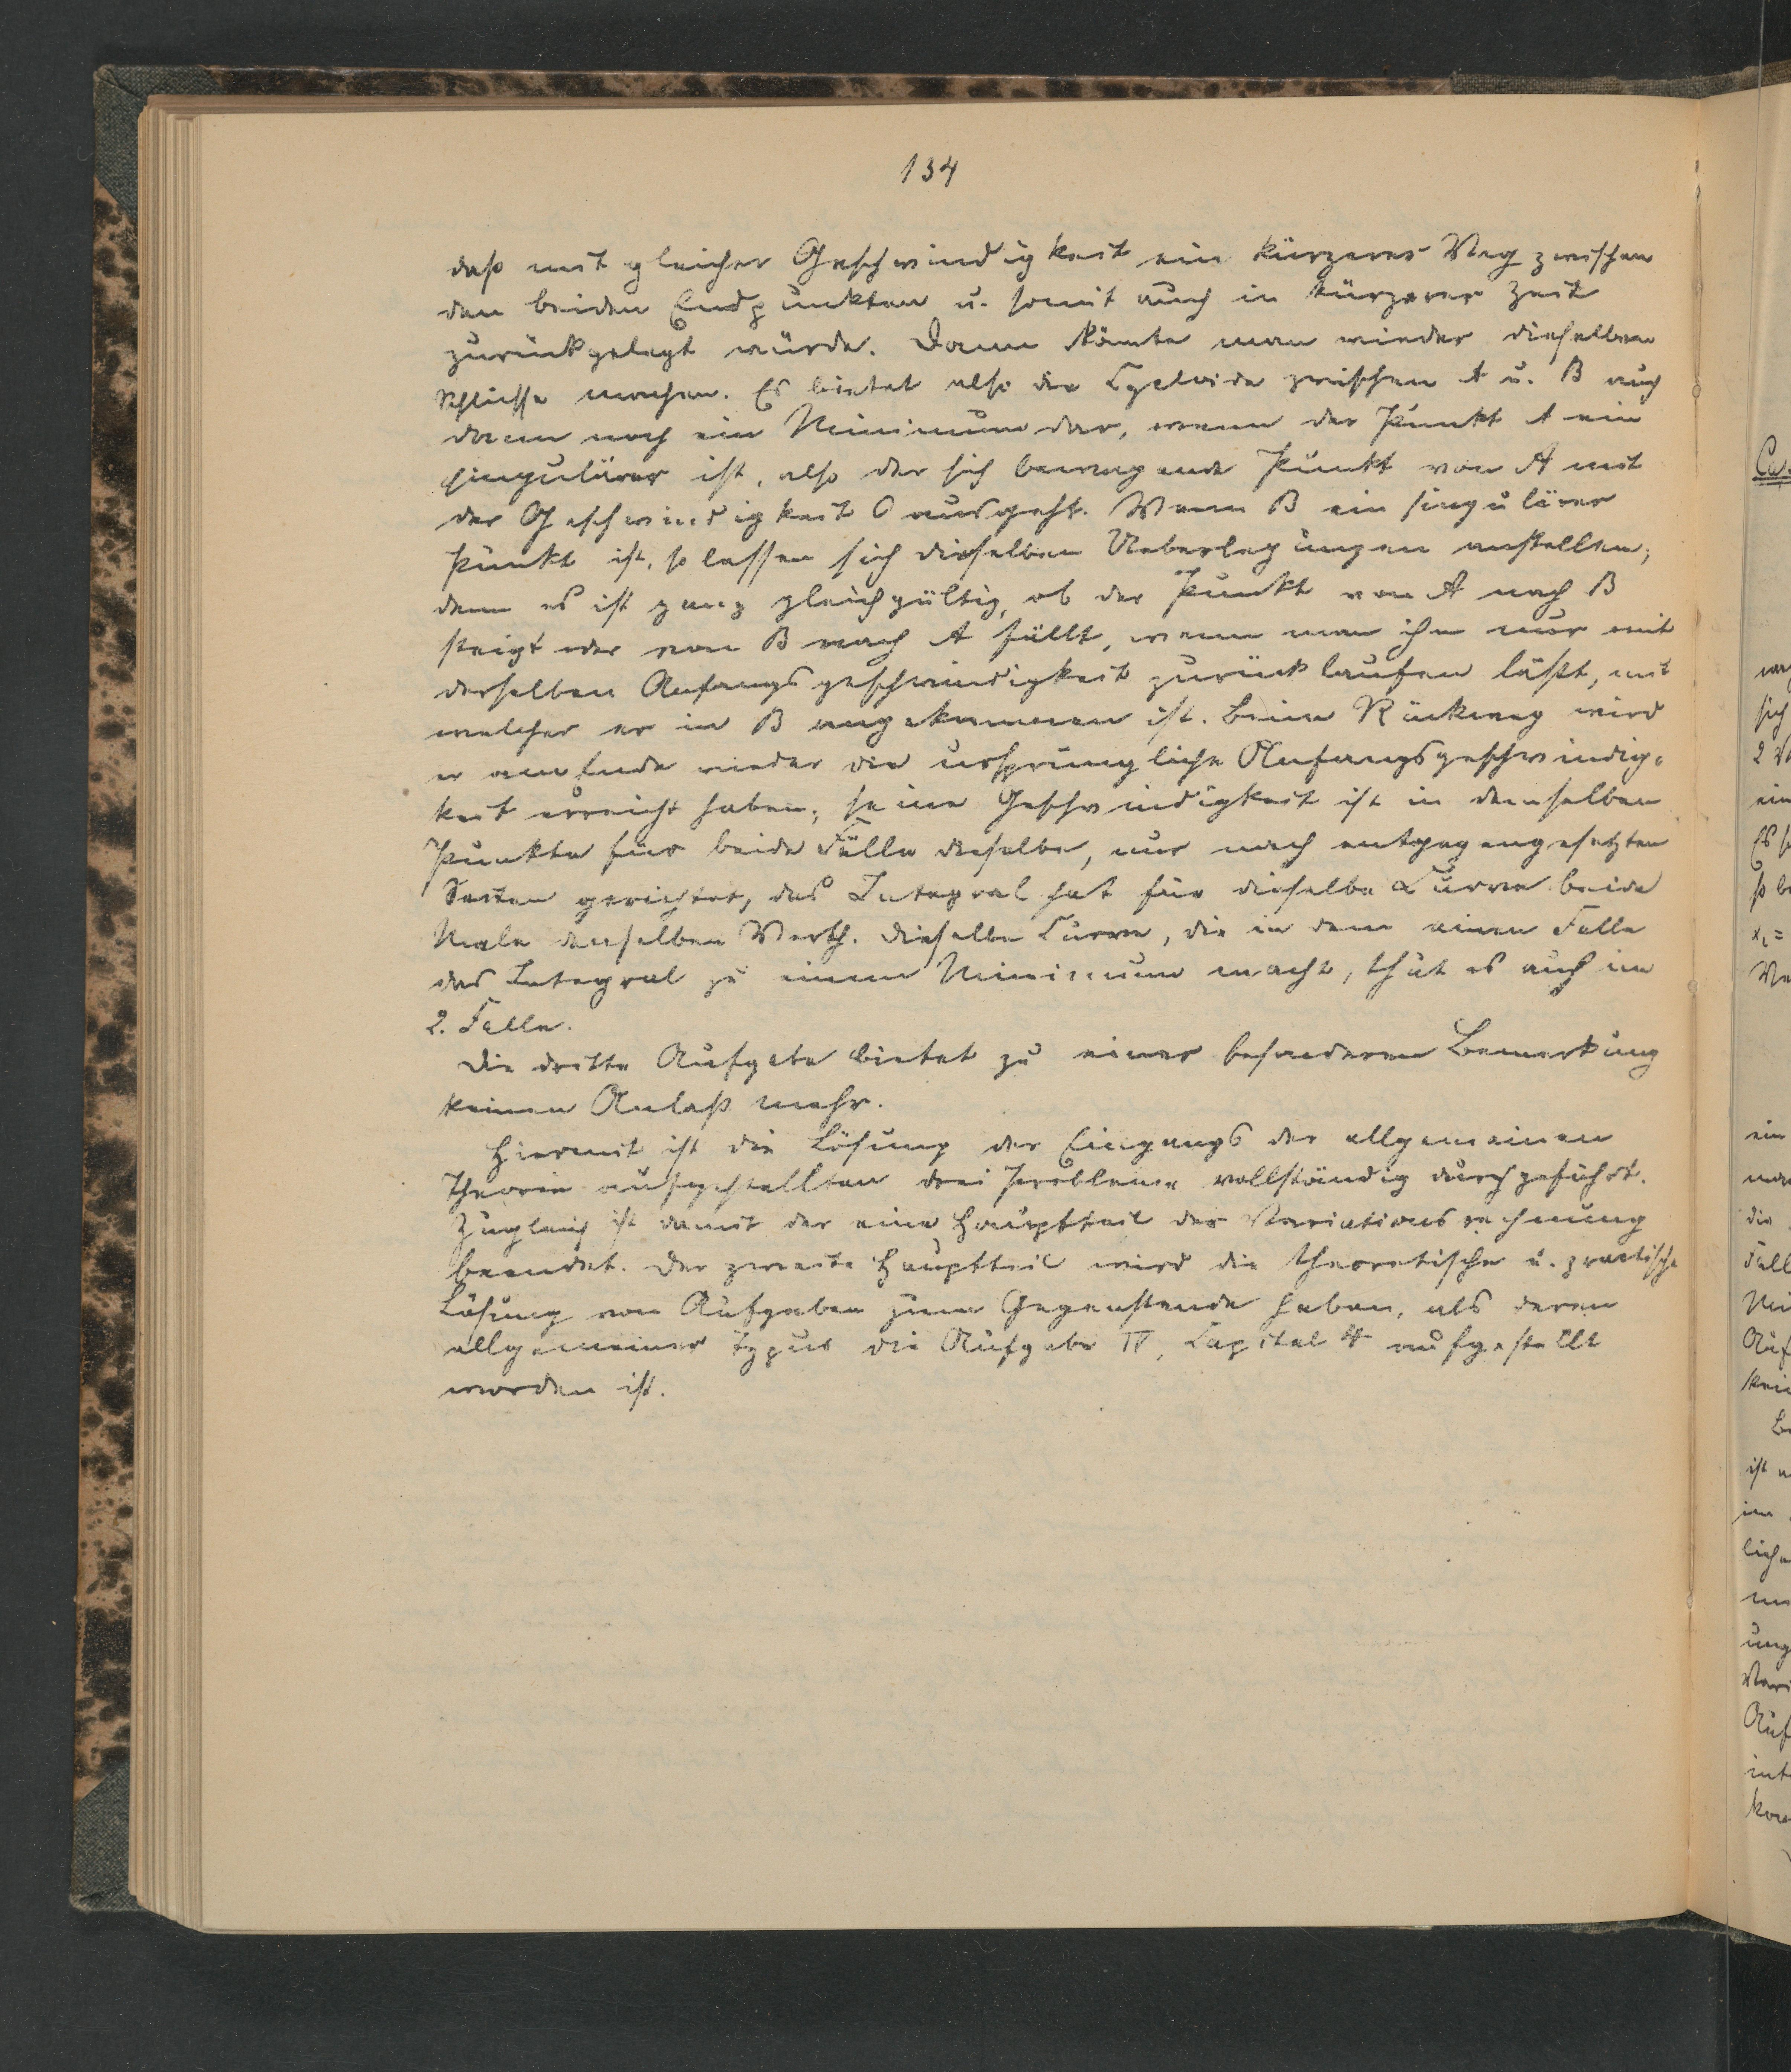 134
daß mit gleicher Geschwindigkeit ein kürzerer Weg zwischen
den beiden Endpunkten u. somit auch in kürzerer Zeit
zurückgelegt würde. Dann könnte man wieder dieselben
Schlüsse machen. Es bietet also die Cycloide zwischen A u. B auch
dann noch ein Minimum dar, wenn der Punkt A ein
singulärer ist, also der sich bewegende Punkt von A mit
der Geschwindigkeit 0 ausgeht. Wenn B ein singulärer
Punkt ist, so lassen sich dieselben Ueberlegungen anstellen;
denn es ist ganz gleichgültig, ob der Punkt von A nach B
steigt oder von B nach A fällt, wenn man ihn nur mit
derselben Anfangsgeschwindigkeit zurücklaufen läßt, mit
welcher er in B angekommen ist. Beim Rückweg wird
er am Ende wieder die ursprüngliche Anfangsgeschwindig-
keit erreicht haben; seine Geschwindigkeit ist in demselben
Punkte für beide Fälle dieselbe, nur nach entgegengesetzten
Seiten gerichtet, das Integral hat für dieselbe Curve beide
Male denselben Werth. Dieselbe Curve, die in dem einen Falle
das Integral zu einem Minimum macht, thut es auch im
2. Falle.
Die dritte Aufgabe bietet zu einer besonderen Bemerkung
keinen Anlaß mehr.
Hiermit ist die Lösung der Eingangs der allgemeinen
Theorie aufgestellten drei Probleme vollständig durchgeführt.
Zugleich ist damit der eine Hauptteil der Variationsrechnung
beendet. Der zweite Hauptteil wird die theoretische u. practische
Lösung von Aufgaben zum Gegenstande haben, als deren
allgemeiner Typus die Aufgabe IV, Capitel 4 aufgestellt
worden ist.